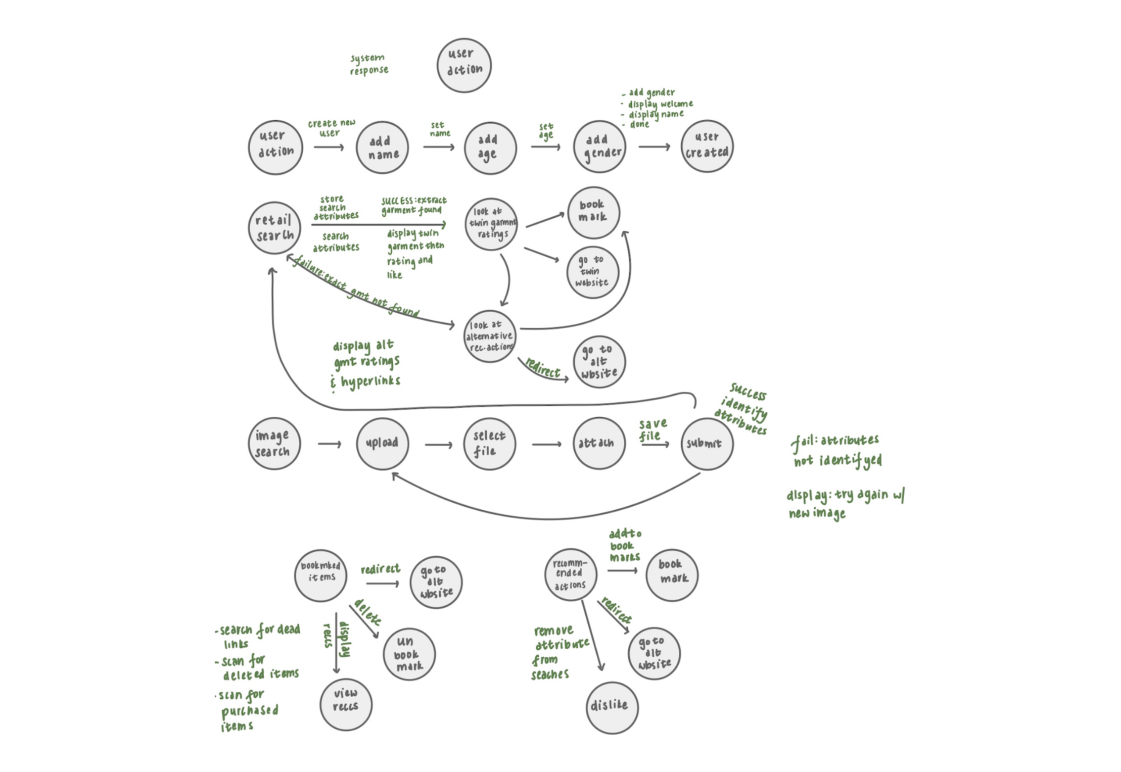 system
response
user
action
- add gender
- display welcome
- display name
- done
user
action
create new
user
add
name
set
name
add
age
set
age
add
gender
user
created
retail
search
store
search
attributes
search
attributes
SUCCESS: extract
garment found
display twin
garment then
rating and
like
look at
twin garmnt
ratings
book
mark
go to
twin
website
failure: exact gmt not found
look at
alternative
rec. actions
redirect
go to
alt
wbsite
display alt
gmt ratings
& hyperlinks
image
search
upload
select
file
attach
save
file
submit
success
identify
attributes
fail: attributes
not identifyed
display: try again w/
new image
bookmked
items
redirect
go to
alt
wbsite
delete
un
book
mark
display
reccs
view
reccs
- search for dead
links
- scan for
deleted items
- scan for
purchased
items
recomm-
ended
actions
add to
book
marks
book
mark
redirect
go to
alt
wbsite
remove
attribute
from
seaches
dislike